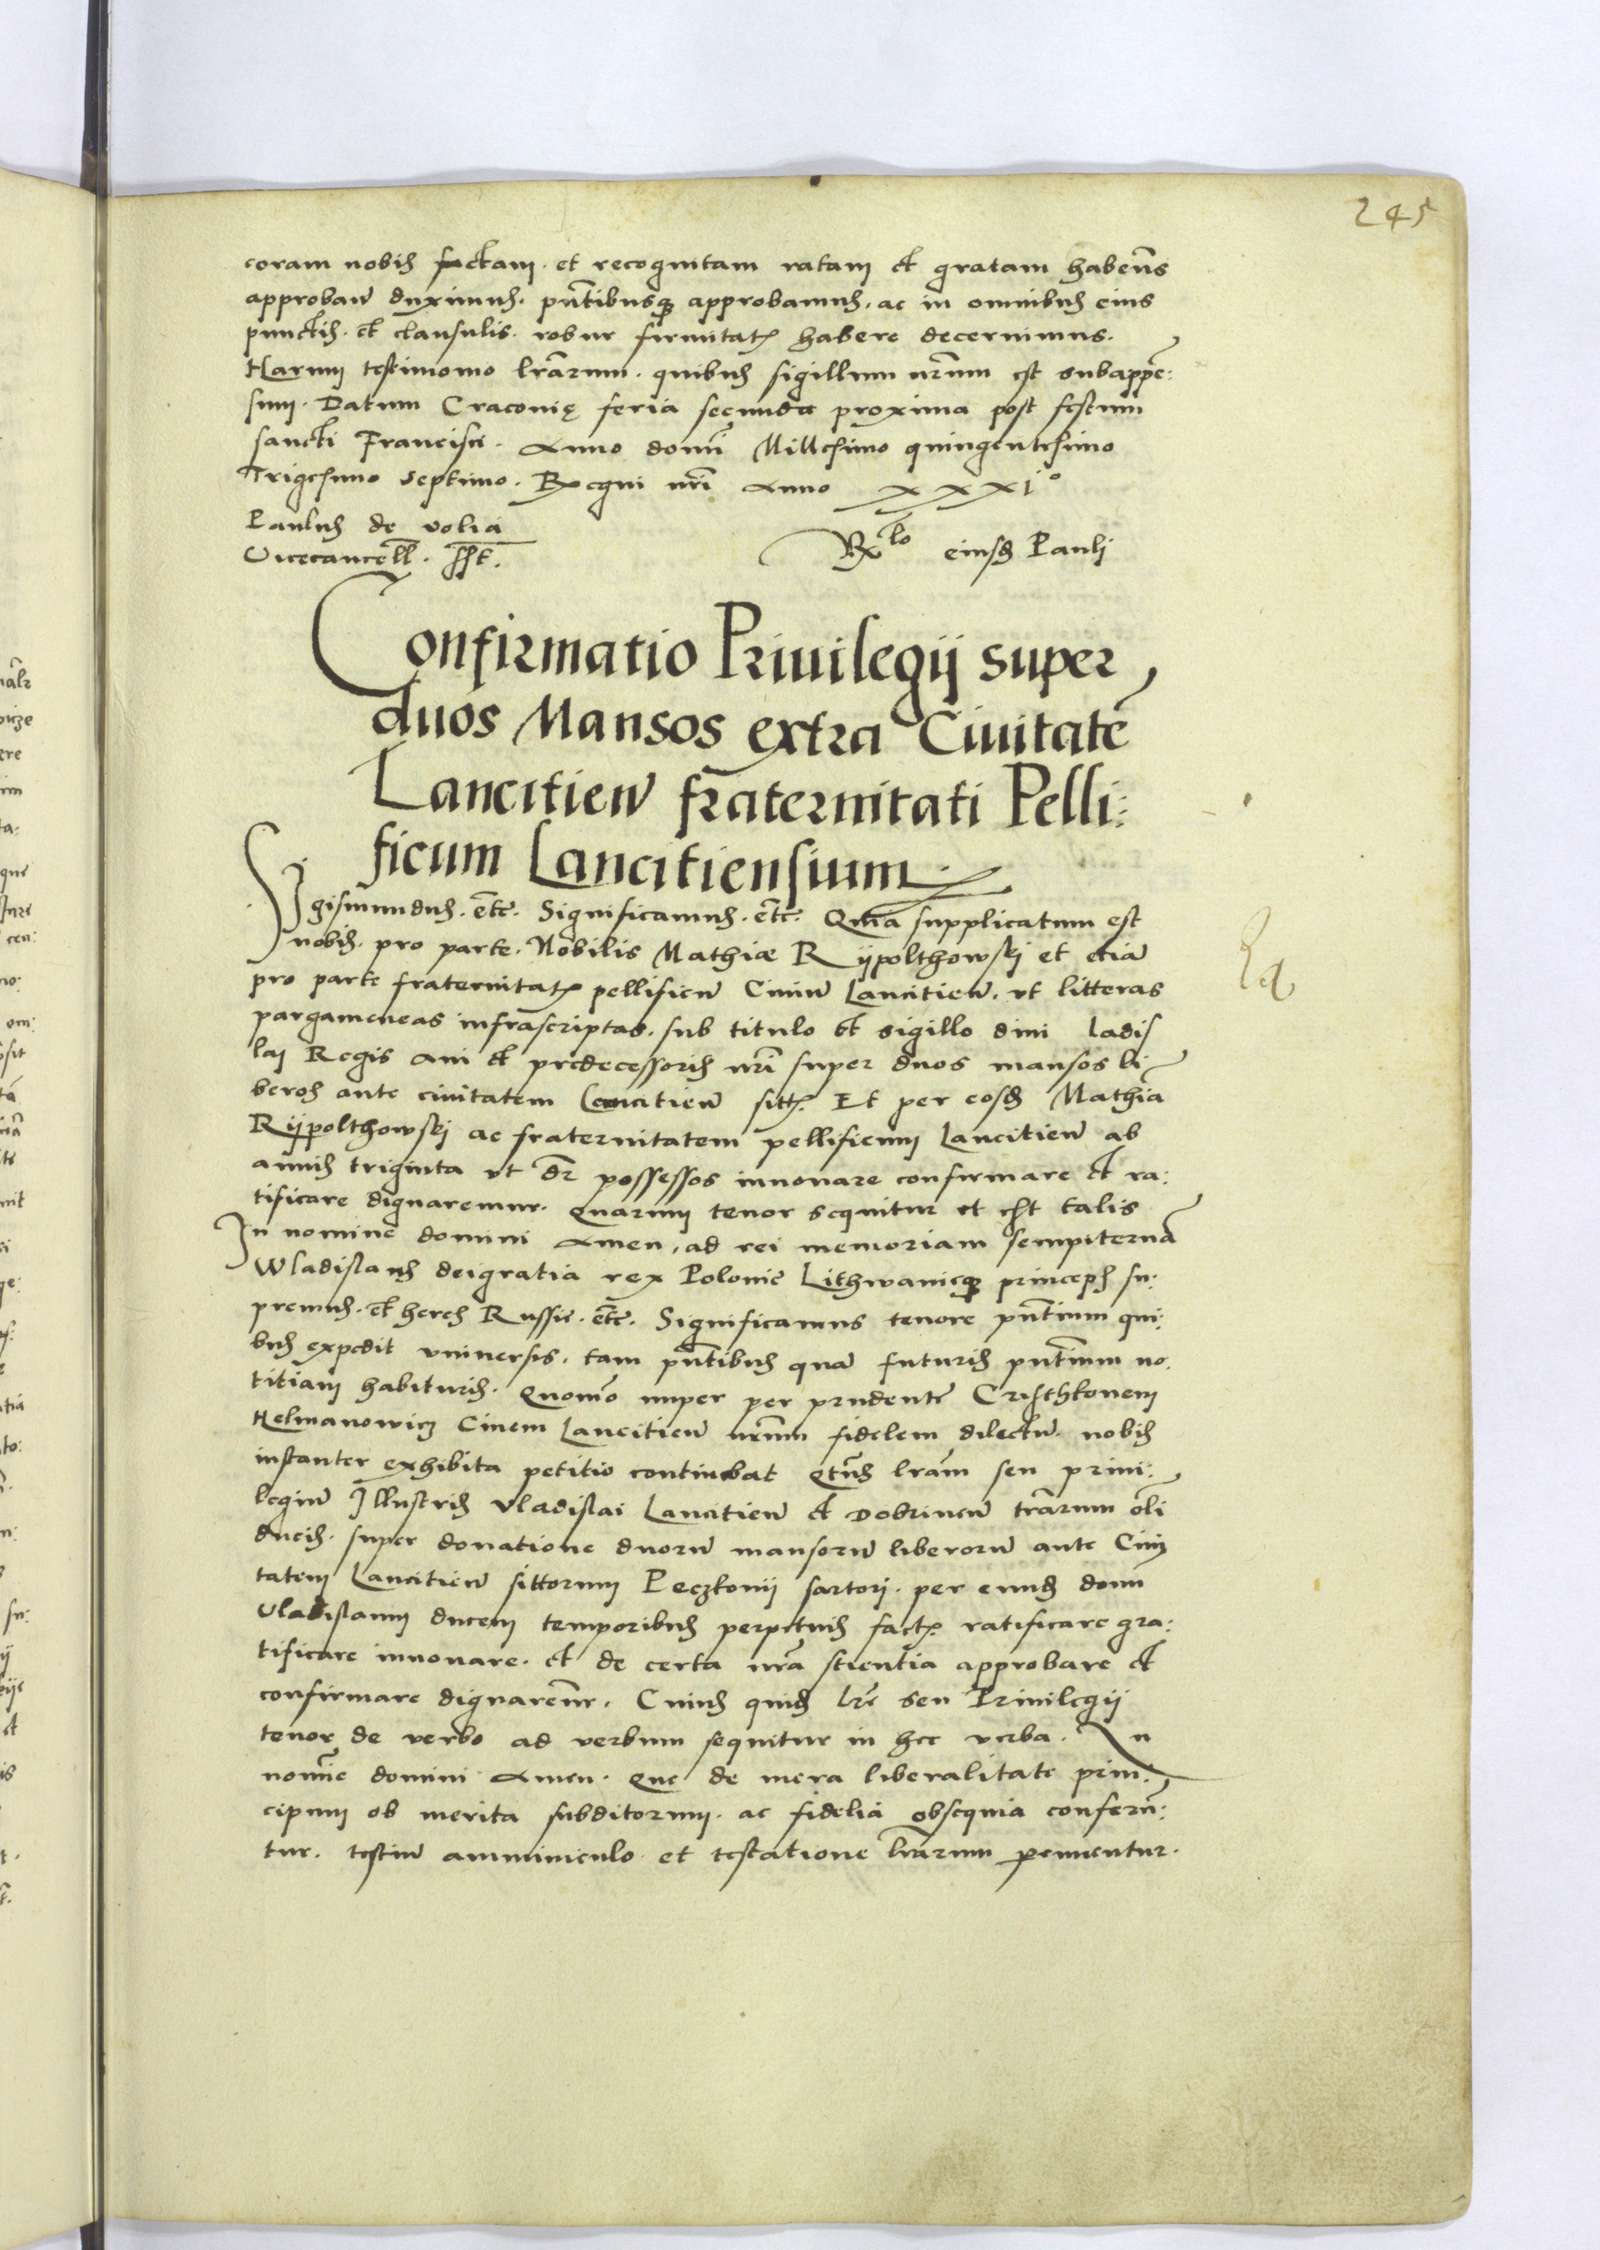 245
coram nobis factam et recognitam ratam et gratam habeñs
approbañ duximus. pñtibusq3 approbamus. ac in omnibus eius
punctis et clausulis. robur firmitatis habere decernimus.
Harum testimonio lrarum. quibus sigillum nrum est subappē:
sum. Datum Craconię feria secunda proxima post festum
sancti Francisci. Anno domi Millesimo quingentesimo
Trigesimo septimo. Regni nri Anno xxxiº
Paulus de volia
Vicecancell. sst.
Rlo eiusd Pauli
Confirmatio Priuilegij super
duos Mansos extra Ciuitatē
Lancitien fraternitati Pelli:
ficum Lancitiensium.
Sigismundus. etc. Significamus. etc. Quia supplicatum est
nobis. pro parte. Nobilis Mathiæ Rijpolthowskj et etiā
pro parte fraternitatis pellificū Ciuiū Lancitien. vt litteras
pargameneas infrascriptas. sub titulo et sigillo diui ladis
lai Regis aui et predecessoris nri super duos mansos li
beros ante ciuitatem Lancitien sitt. Et per eosd Mathiā
Rijpolthowskj ac fraternitatem pellificum Lancitien ab
annis triginta vt dr possessos innouare confirmare et ra:
tificare dignaremur. Quarum tenor sequitur et est talis
In nomine domini Amen, ad rei memoriam sempiternā
Wladislaus deigratia rex Polonie Lithwanieq3 princeps su:
premus. et heres Russie. etc. Significamus tenore pñtium qui:
bus expedit vniuersis. tam pñtibus quā futuris pñtium no:
titiam habituris. Quomo nuper per prudentē Cristhkonem
Helmanowicz Ciuem Lancitien nrum fidelem dilectū nobis
instanter exhibita petitio continebat Qtus lram seu priui:
legiū Illustris Vladislai Lancitien et Dobrinen trarum oli
ducis. super donatione duorū mansorū liberorū ante Ciui
tatem Lancitien sittorum Peczkonij sartori. per eund dom
Vladislaum ducem temporibus perpetuis fact. ratificare gra:
tificare innouare. et de certa nra scientia approbare et
confirmare dignaremr. Cuius quid lre seu Priuilegij
tenor de verbo ad verbum sequitur in hec verba. In
nomie domini Amen. Que de mera liberalitate prin:
cipum ob merita subditorum. ac fidelia obsequia conferū:
tur. testiū amminiculo et testatione lrarum perennentur.